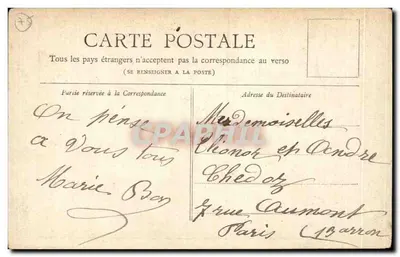 CARTE POSTALE
Tous les pays étrangers n'acceptent pas la correspondance au verso
(SE RENSEIGNER A LA POSTE)
Partie réservée à la Correspondance
Adresse du Destinataire
On pense
a Vous tous
Marie Bon
Mesdemoiselles
Elionor et Andre
Chedoz
7 rue Aumont
Paris